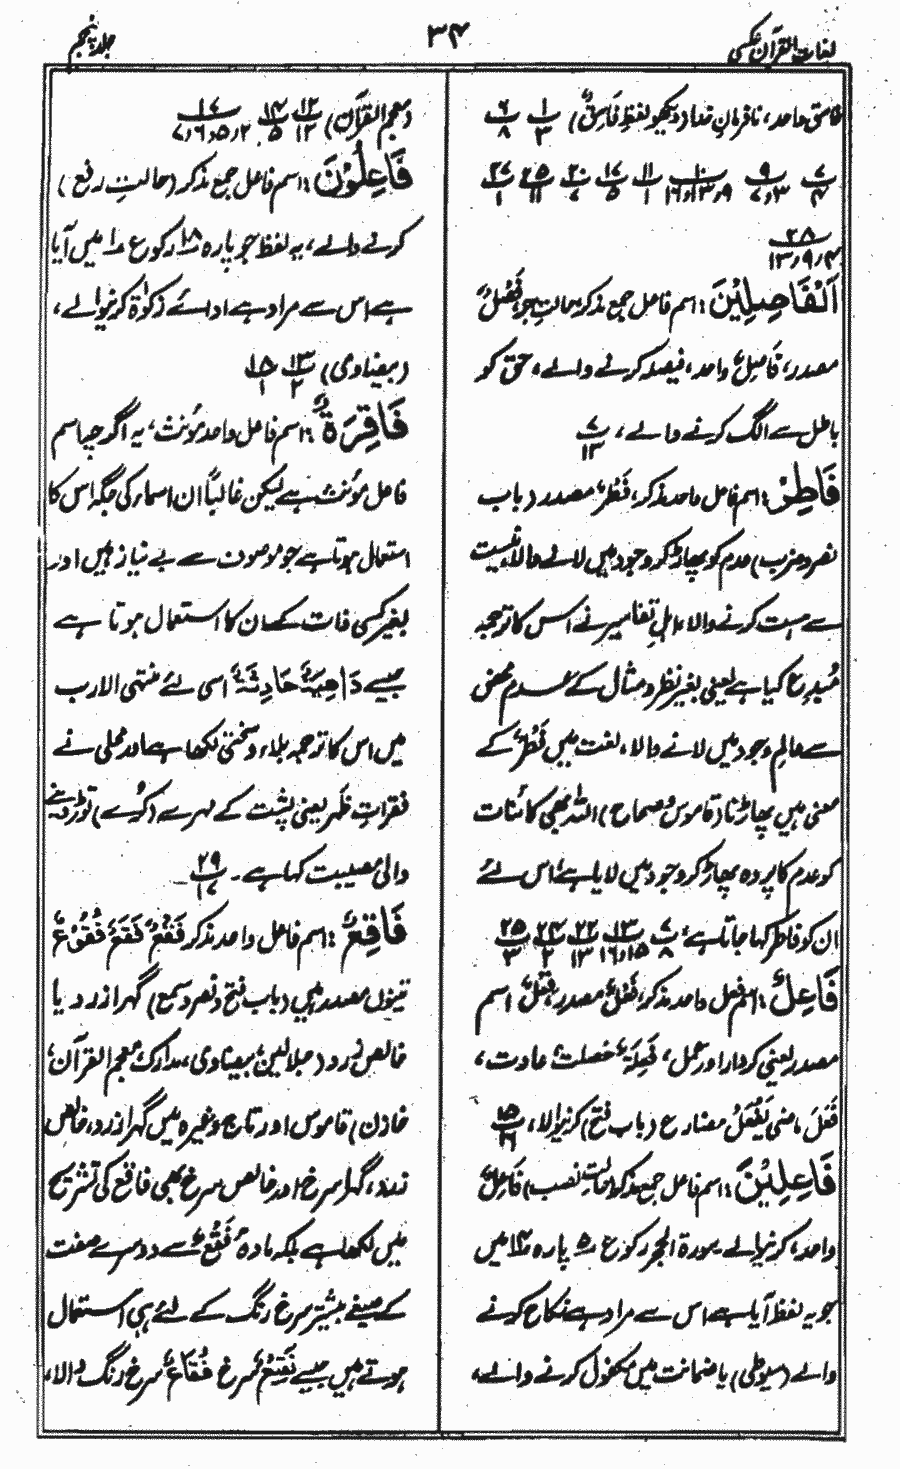 لغات القرآن عکسی
۳۴
جلد پنجم
فاسق واحد، نافرمان فساد (دیکھو لفظِ فَاسِقٌ) ۱/۳ ۶/۸
۷/۴ ۹/۳، ۷ ۱۰/۹، ۱۳، ۱۶ ۱۱/۱ ۱۷/۵ ۲۰/۷ ۲۵/۱۱ ۲۷/۱
۲۸/۴، ۹، ۱۳
اَلْفَاصِلِیْنَ: اسم فاعل جمع مذکر بحالتِ جر، فَصْلٌ
مصدر، فَاصِلٌ واحد، فیصلہ کرنے والے، حق کو
باطل سے الگ کرنے والے، ۷/۱۳
فَاطِرُ: اسم فاعل واحد مذکر، فَطْرٌ مصدر (باب
نصر و ضرب) عدم کو پھاڑ کر وجود میں لانے والا، نیست
سے ہست کرنے والا، اہلِ تفاسیر نے اس کا ترجمہ
مُبدِع کیا ہے یعنی بغیر نظر و مثال کے عدم محض
سے عالمِ وجود میں لانے والا، لغت میں فَطْرٌ کے
معنی ہیں پھاڑنا (قاموس و صحاح) اللہ بھی کائنات
کو عدم کا پردہ پھاڑ کر وجود میں لایا ہے، اس لئے
ان کو فاطر کہا جاتا ہے، ۷/۸ ۱۳/۱۵، ۱۶ ۲۲/۱۳ ۲۴/۲ ۲۵/۳
فَاعِلٌ: اسم فاعل واحد مذکر، فَعْلٌ مصدر، فِعْلٌ اسم
مصدر یعنی کردار اور عمل، فَعِلَۃٌ خصلت، عادت،
فَعَلَ ماضی یَفْعَلُ مضارع (باب فتح) کرنیوالا، ۱۵/۱۶
فَاعِلِیْنَ: اسم فاعل جمع مذکر (حالتِ نصب) فَاعِلٌ
واحد، کرنیوالے سورۃ الحجر رکوع ۵ پارہ ۱۴ میں
جو یہ لفظ آیا ہے اس سے مراد ہے نکاح کرنے
والے (سیوطی) یا ضمانت میں مکفول کرنے والے،
(معجم القرآن) ۱۲/۱۳ ۱۴/۵ ۱۷/۲، ۵، ۶، ۷
فَاعِلُوْنَ: اسم فاعل جمع مذکر (حالتِ رفع)
کرنے والے، یہ لفظ جو پارہ ۱۸ رکوع ۱ میں آیا
ہے اس سے مراد ہے ادائے زکوٰۃ کرنیوالے،
(بیضاوی) ۱۳/۲ ۱۸/۱
فَاقِرَۃٌ: اسم فاعل واحد مؤنث، یہ اگرچہ اسم
فاعل مؤنث ہے لیکن غالباً ان اسماء کی جگہ اس کا
استعمال ہوتا ہے جو موصوف سے بے نیاز ہیں اور
بغیر کسی فات کے ان کا استعمال ہوتا ہے
جیسے دَاهِیَۃٌ حَادِثَۃٌ اسی لئے منتہی الارب
میں اس کا ترجمہ بلاء و سختی لکھا ہے اور محلی نے
فقراتِ ظَہر یعنی پشت کے مہرے (کڑے) توڑ دینے
والی مصیبت کہا ہے۔ ۲۹/۱۷
فَاقِعٌ: اسم فاعل واحد مذکر فَقْعٌ فَقَعٌ فُقُوْعٌ
تینوں مصدر ہیں (باب فتح و نصر و سمع) گہرا زرد یا
خالص زرد (جلالین، بیضاوی، مدارک، معجم القرآن،
خازن) قاموس اور تاج وغیرہ میں گہرا زرد، خالص
زرد، گہرا سرخ اور خالص سرخ بھی فاقع کی تشریح
میں لکھا ہے بلکہ مادہ فَقْعٌ سے دوسرے صفت
کے صیغے بیشتر سرخ رنگ کے لئے ہی استعمال
ہوتے ہیں جیسے فَقِیْعٌ سرخ فُقَاعٌ سرخ رنگ والا،